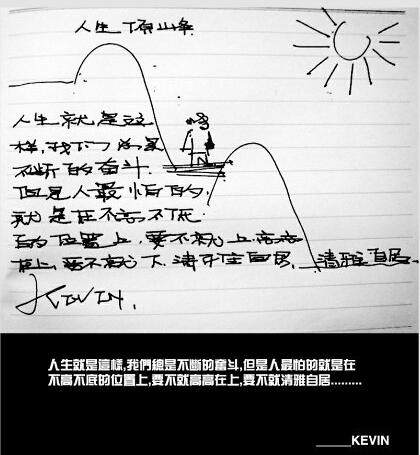 人生顶峰
人生就是这
样,我们总是
不断的奋斗.
但是人最怕的,
就是在不高不低
的位置上,要不就上高高
在上,要不就下.清雅自居,清雅自居.
KEVIN.
人生就是這樣,我們總是不斷的奮斗,但是人最怕的就是在
不高不底的位置上,要不就高高在上,要不就清雅自居.........
_____KEVIN